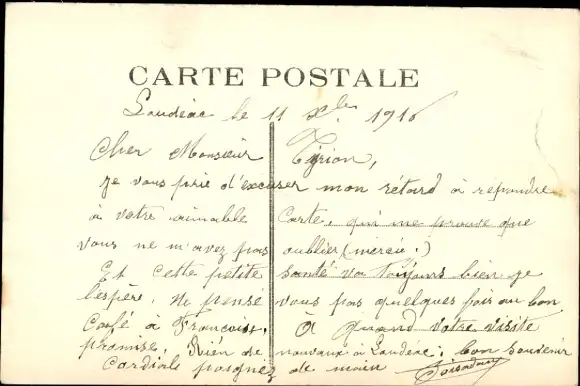 CARTE POSTALE
Loudéac le 11 Xbre 1916
Cher Monsieur Tyrion,
je vous prie d'excuser mon rétard à répondre
à votre aimable Carte, qui me prouve que
vous ne m'avez pas oublier (merçie!)
Et cette petite santé va toujours bien je
l'espère. Ne pensé vous pas quelques fois au bon
Café à Françoise. A quand votre visite
promise. Rién de nouveaux à Loudéac; bon souvenir
Cordiale poignez de main